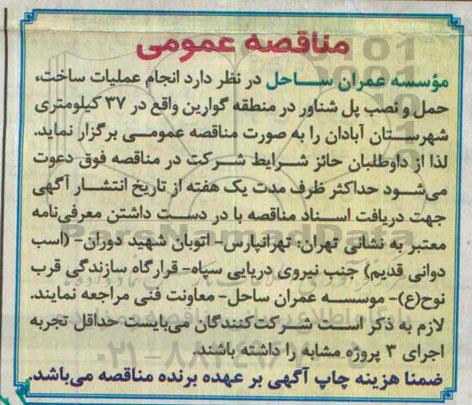 مناقصه عمومی
مؤسسه عمران ساحل در نظر دارد انجام عملیات ساخت،
حمل و نصب پل شناور در منطقه گوارین واقع در ۳۷ کیلومتری
شهرستان آبادان را به صورت مناقصه عمومی برگزار نماید.
لذا از داوطلبان حائز شرایط شرکت در مناقصه فوق دعوت
می‌شود حداکثر ظرف مدت یک هفته از تاریخ انتشار آگهی
جهت دریافت اسناد مناقصه با در دست داشتن معرفی‌نامه
معتبر به نشانی تهران: تهرانپارس- اتوبان شهید دوران- (اسب
دوانی قدیم) جنب نیروی دریایی سپاه- قرارگاه سازندگی قرب
نوح(ع)- موسسه عمران ساحل- معاونت فنی مراجعه نمایند.
لازم به ذکر است شرکت‌کنندگان می‌بایست حداقل تجربه
اجرای ۳ پروژه مشابه را داشته باشند.
ضمنا هزینه چاپ آگهی بر عهده برنده مناقصه می‌باشد.
ParsNamadData